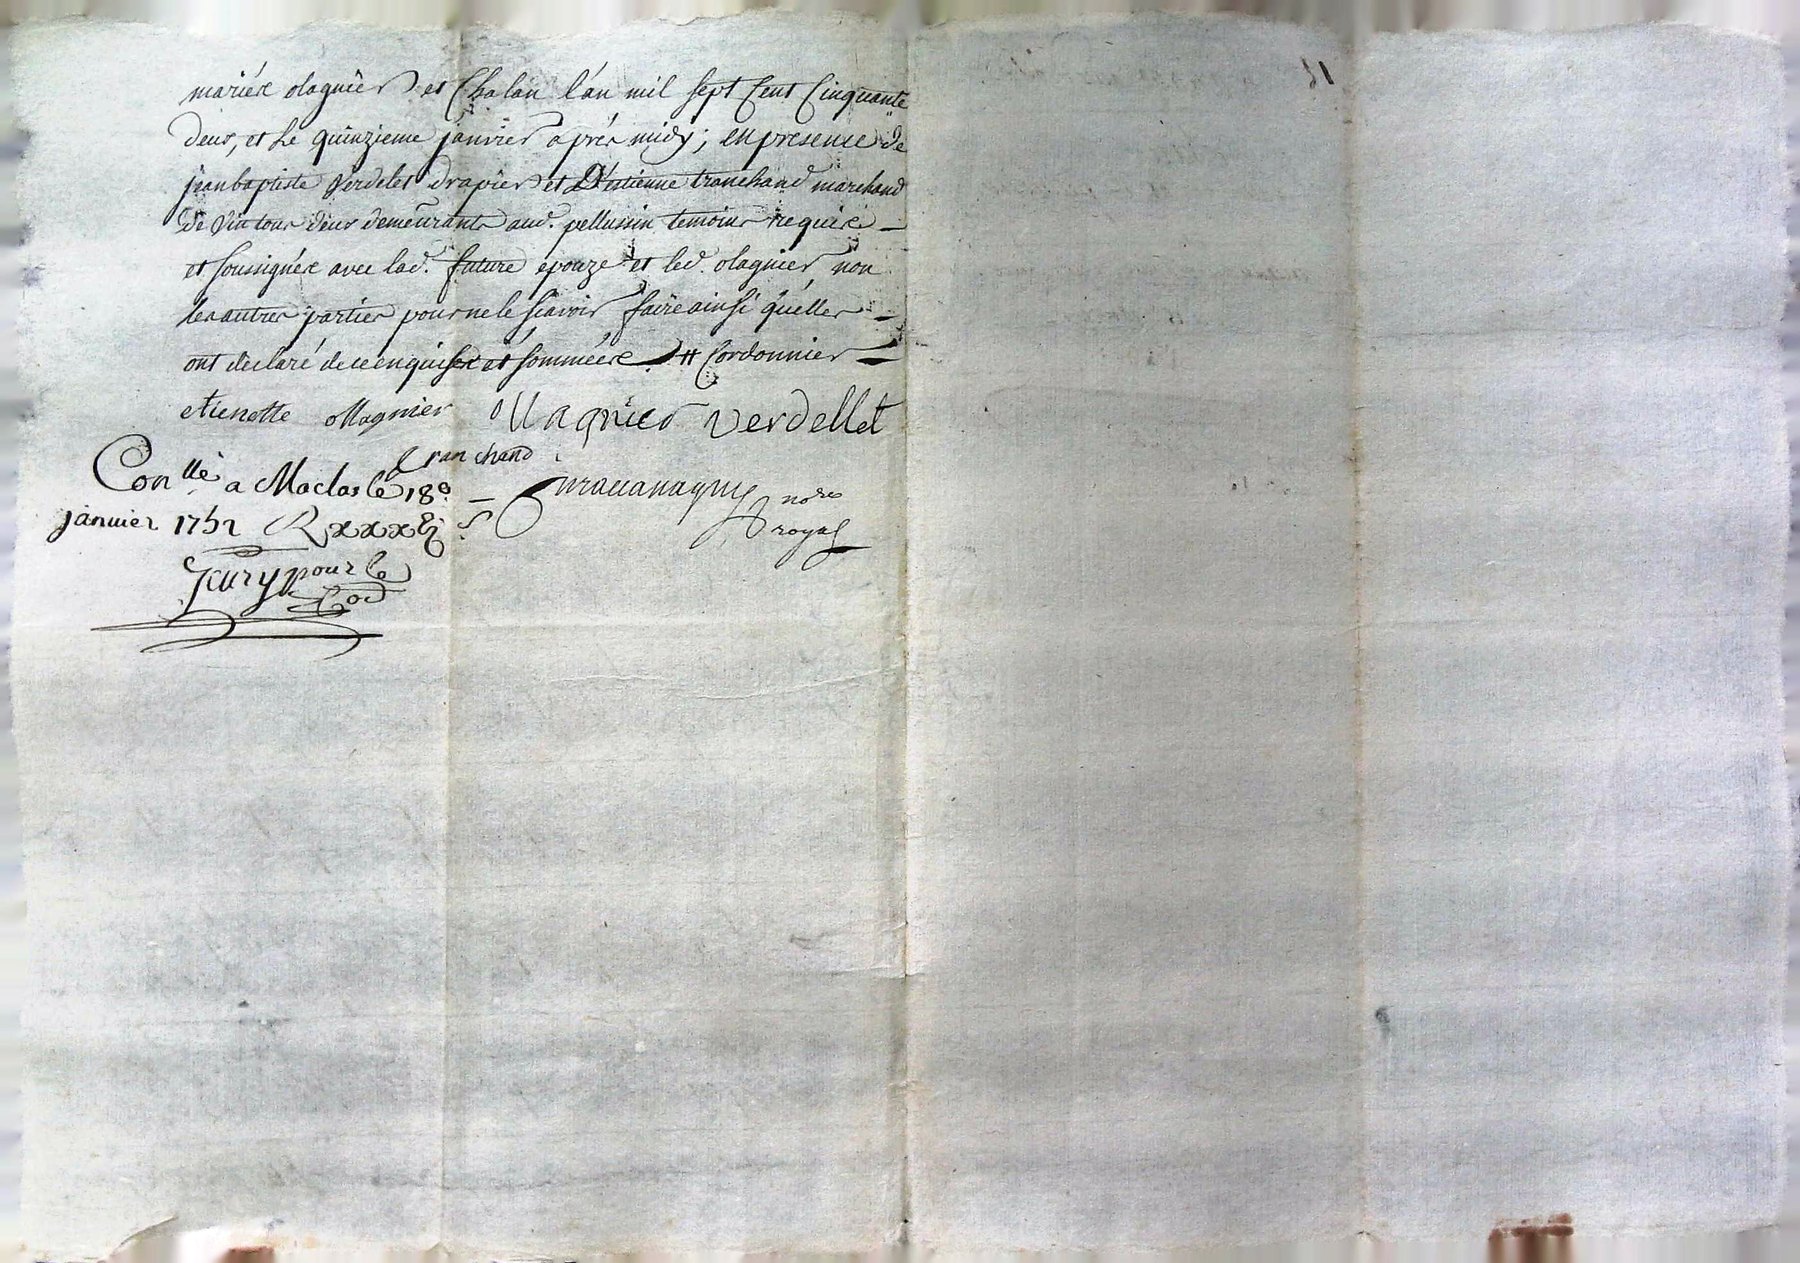 mariées olagnier et Chalan l'an mil sept Cent Cinquante
deux, et le quinzieme janvier après midy; en presence de
jean baptiste verdelet drapier et D'estienne tranchand marchand
de vin tous deux demeurants aud. pellussin temoins requis
et soussignés avec lad. future épouze et led. olagnier non
les autres parties pour ne le sçavoir faire ainsi qu'elles
ont declaré de ce enquises et sommées # Cordonnier
etienette ollagnier ollagnier verdellet
tranchand
Con.llé a Maclas le 18e
nore
janvier 1752 R xxxx
royal
Jury pour le